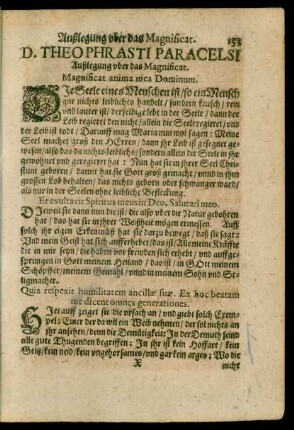 Außlegung vber das Magnificat. 153
D. THEOPHRASTI PARACELSI
Außlegung vber das Magnificat.
Magnificat anima mea Dominum.
DIe Seele eines Menschen ist / so ein Mensch
gar nichts leibliches handelt / sondern keusch / rein
vnd lauter ist / derselbige lebt in der Seele / dann der
Leib regieret den nicht / allein die Seele regieret / vnd
der Leib ist todt / Darauff mag Maria nun wol sagen: Meine
Seel machet groß den HErren / dann jhr Leib ist gesegnet ge-
wesen / also das da nichts leibliches / sondern allein die Seele in jhr
gewohnet vnd geregieret hat: Nun hat sie in jhrer Seel Christum
geboren / damit hat sie Gott groß gemacht / vnnd in jhm
grossen Lob behalten / das nichts geborn oder schwanger ward /
als nur in der Seelen ohne leibliche Befleckung.
Et exultavit Spiritus meus in Deo, Salutari meo.
DIeweil sie dann nun die ist / die also vber die Natur geboren
hat / das hat sie in jhrer Weißheit mögen ermessen. Auff
solch jhr eigen Erkentnüß hat sie darzu bewegt / daß sie sagt:
Vnd mein Geist hat sich aufferhebet / das ist / Alle meine Kräffte
die in mir seyn / die haben vor frewden sich erhebt / vnd auffge-
sprungen in Gott meinem Heiland / das ist / in Gott meinem
Schöpffer / meinem Gemahl / vnnd in meinem Sohn vnd Se-
ligmacher.
Quia respexit humilitatem ancillæ suæ. Ex hoc beatam
me dicent omnes generationes.
HIerauff zeiget sie die vrsach an / vnd giebt solch Exem-
pel: Einer der da wil ein Weib nehmen / der sol nichts an
jhr ansehen / denn die Demütigkeit: In der Demuth seind
alle gute Thugenden begriffen: In jhr ist kein Hoffart / kein
Geitz / kein neid / kein vngehorsames / vnd gar kein arges: Wo die
X nicht